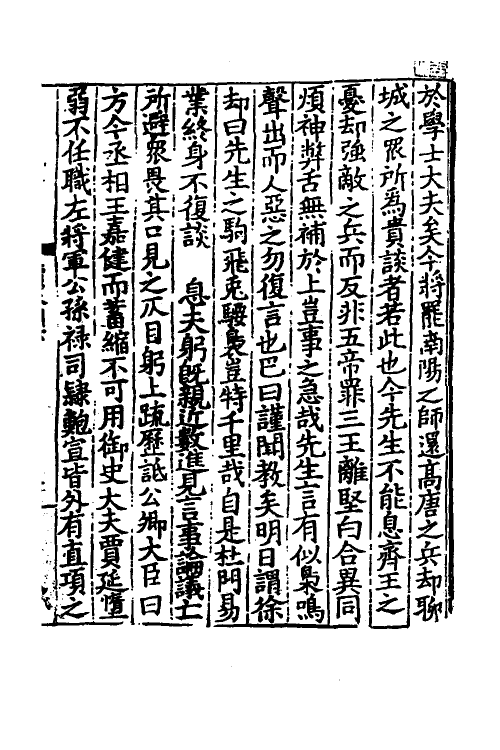 於學士大夫矣今將罷南陽之師還髙唐之兵却聊
城之眾所爲貴談者若此也今先生不能息齊王之
憂却強敵之兵而反非五帝罪三王離堅白合異同
煩神弊舌無補於上豈事之急哉先生言有似梟鳴
聲出而人惡之勿復言也巴曰謹聞教矣明日謂徐
却曰先生之駒飛兎騕褭豈特千里哉自是杜門易
業終身不復談　息夫躬既親近數進見言事論議亡
所避眾畏其口見之仄目躬上疏歷詆公卿大臣曰
方今丞相王嘉健而蓄縮不可用御史大夫賈延惰
弱不任職左將軍公孫祿司隸鮑宣皆外有直項之